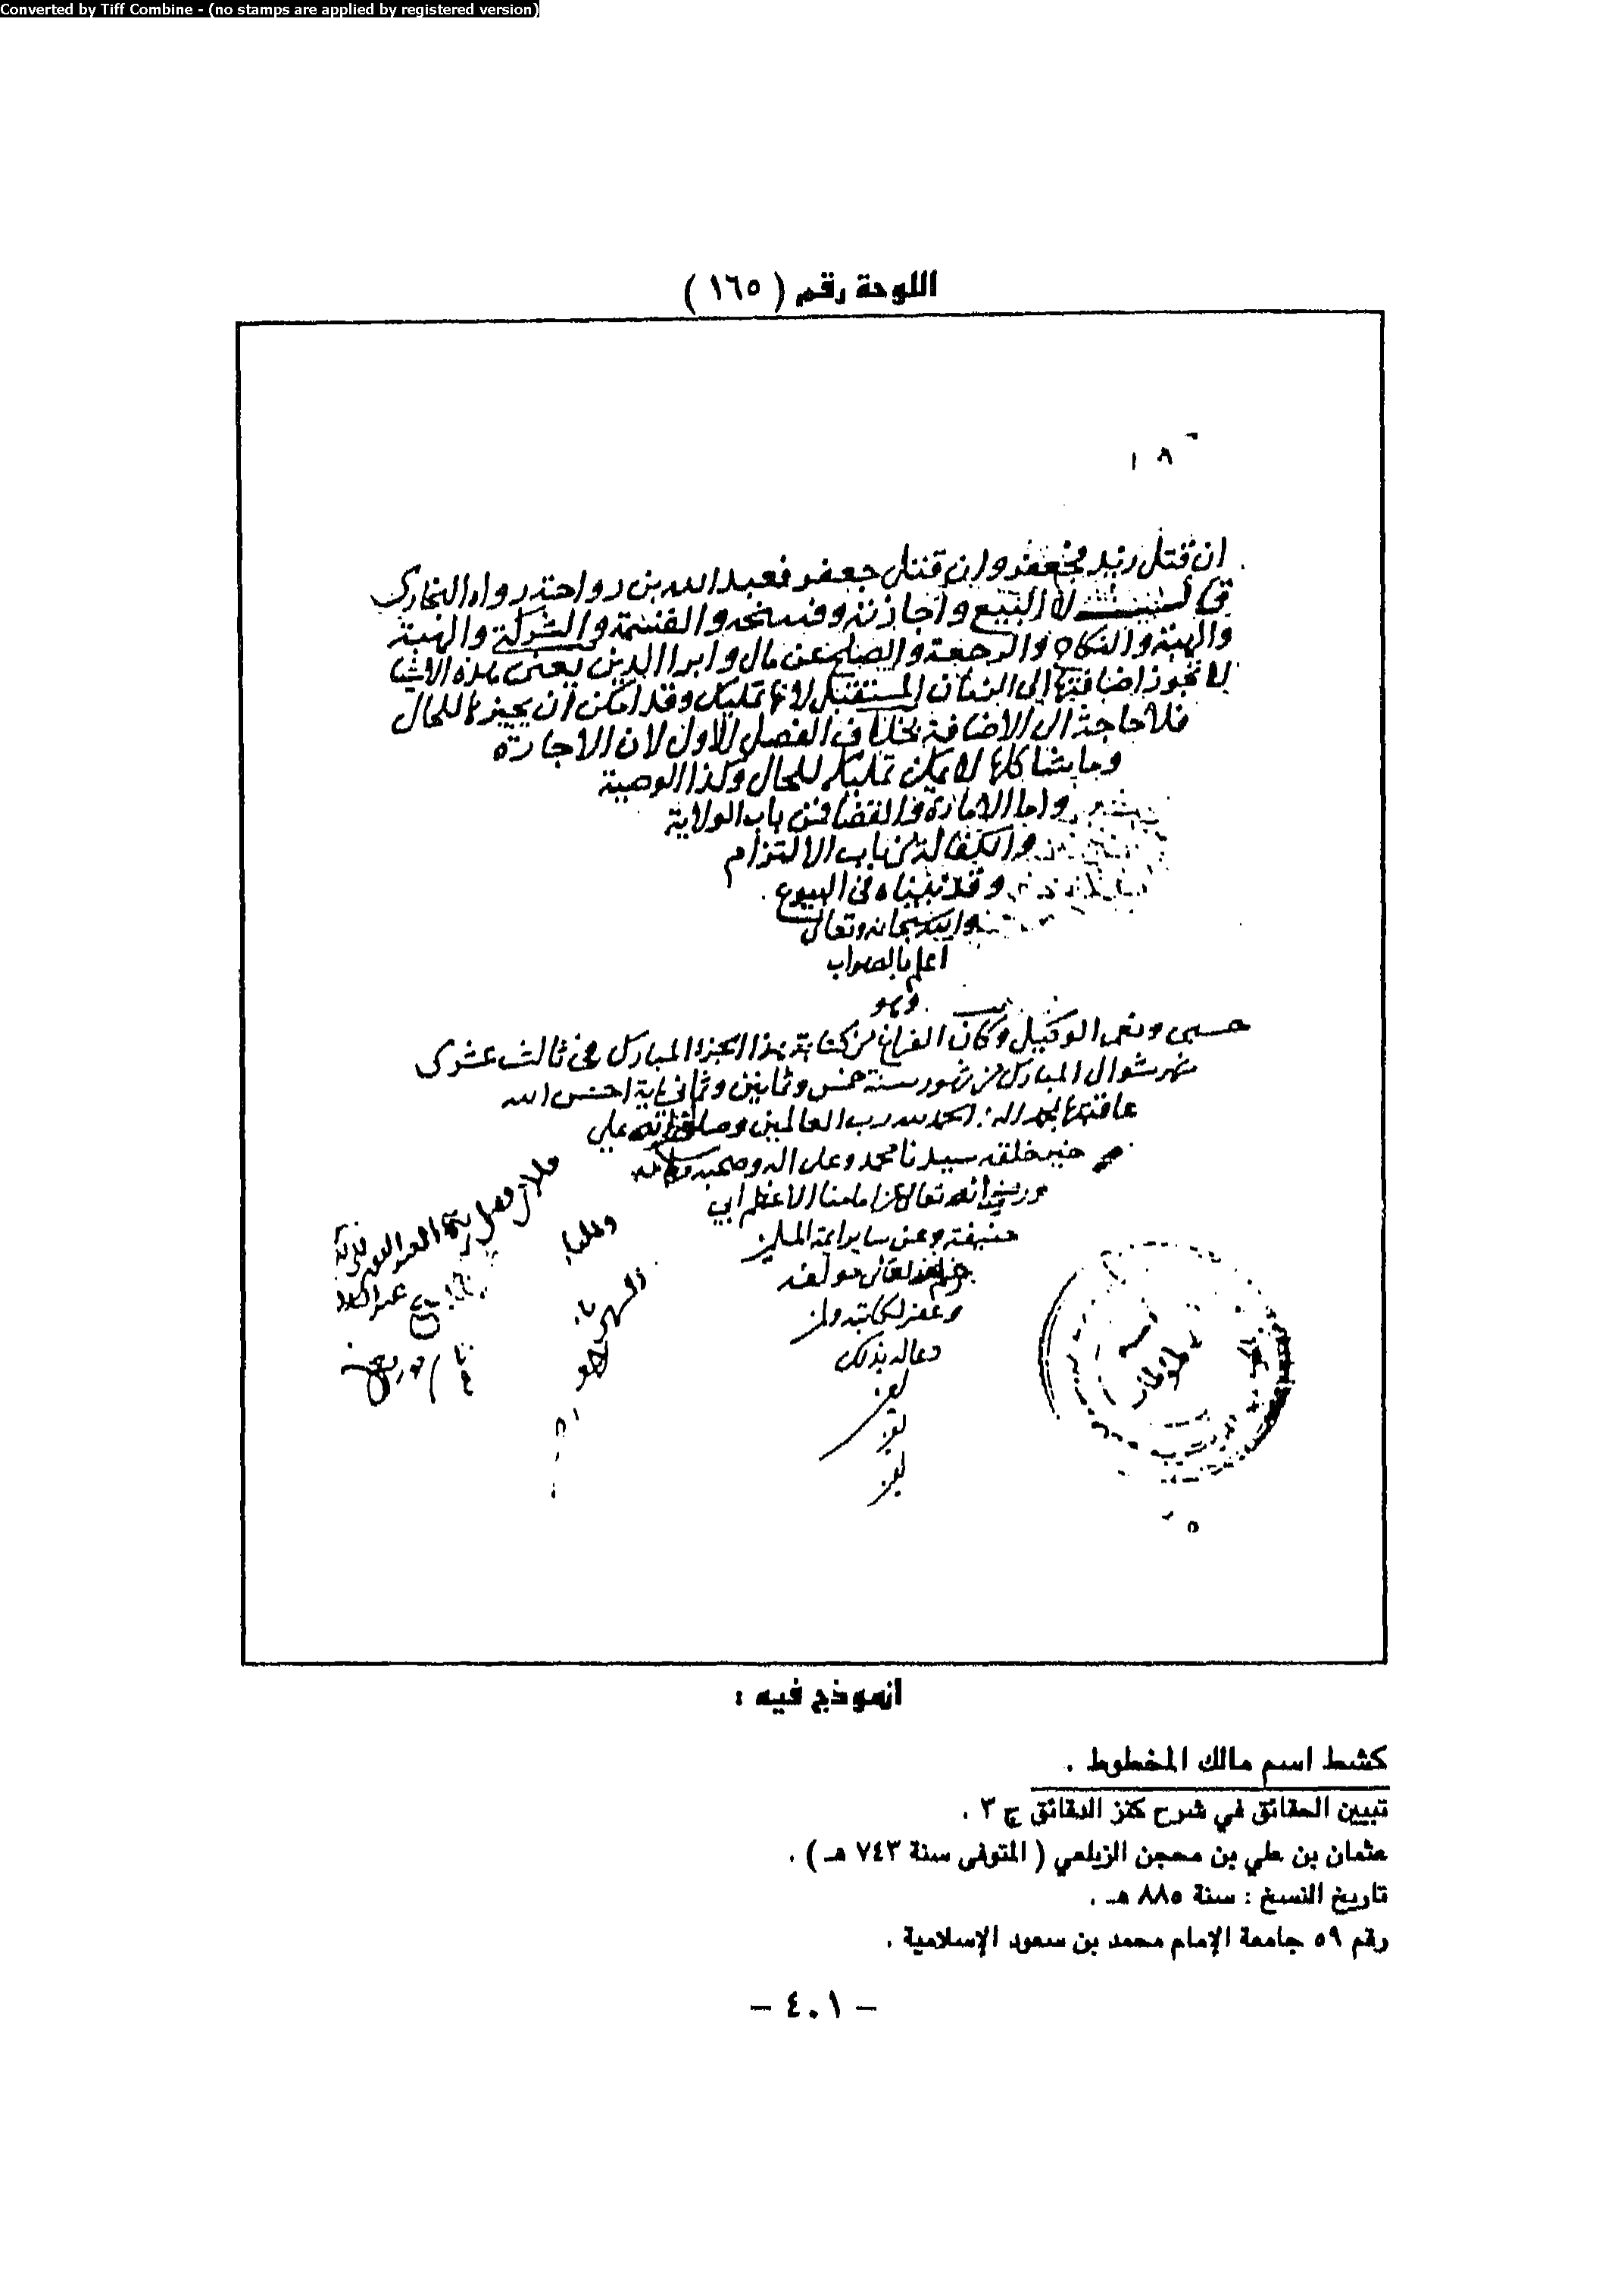 Converted by Tiff Combine - (no stamps are applied by registered version)
اللوحة رقم ( ١٦٥ )
ان قتل زيد فجعفر وان قتل جعفر فعبدالله بن رواحة رواه البخاري
لا البيع واجازته وفسخه والقسمة والشركة والهبة
والهبة والنكاح والرجعة والصلح عن مال وابرا الدين يعنى هذه الاشيا
لا تجوز اضافتها الى الزمان المستقبل لانها تمليك وقد امكن ان يجيزها للحال
فلا حاجة الى الاضافة بخلاف الفصل الاول لان الاجارة
وما يشاكلها لا يمكن تمليكه للحال وكذا الوصية
واما الامارة والقضا فمن باب الولاية
والكفالة من باب الالتزام
وقد بيناه فى البيوع
والله سبحانه وتعالى
اعلم بالصواب
وهو
حسبى ونعم الوكيل وكان الفراغ من كتابة هذا الجزء المبارك فى ثالث عشرى
شهر شوال المبارك من شهور سنة خمس وثمانين وثمانماية احسن الله
عاقبتها الحمد لله رب العالمين وصلى الله على
خير خلقه سيدنا محمد وعلى اله وصحبه وسلم
ورضى الله تعالى عن امامنا الاعظم ابي
حنيفة وعن ساير ايمة المسلمين
وغفر لكاتبه ولمن
دعا له بذلك
انموذج فيه :
كشط اسم مالك المخطوط .
تبيين الحقائق في شرح كنز الدقائق ج ٣ .
عثمان بن علي بن محجن الزيلعي ( المتوفى سنة ٧٤٣ هـ ) .
تاريخ النسخ : سنة ٨٨٥ هـ .
رقم ٥٩ جامعة الإمام محمد بن سعود الإسلامية .
– ٤٠١ –